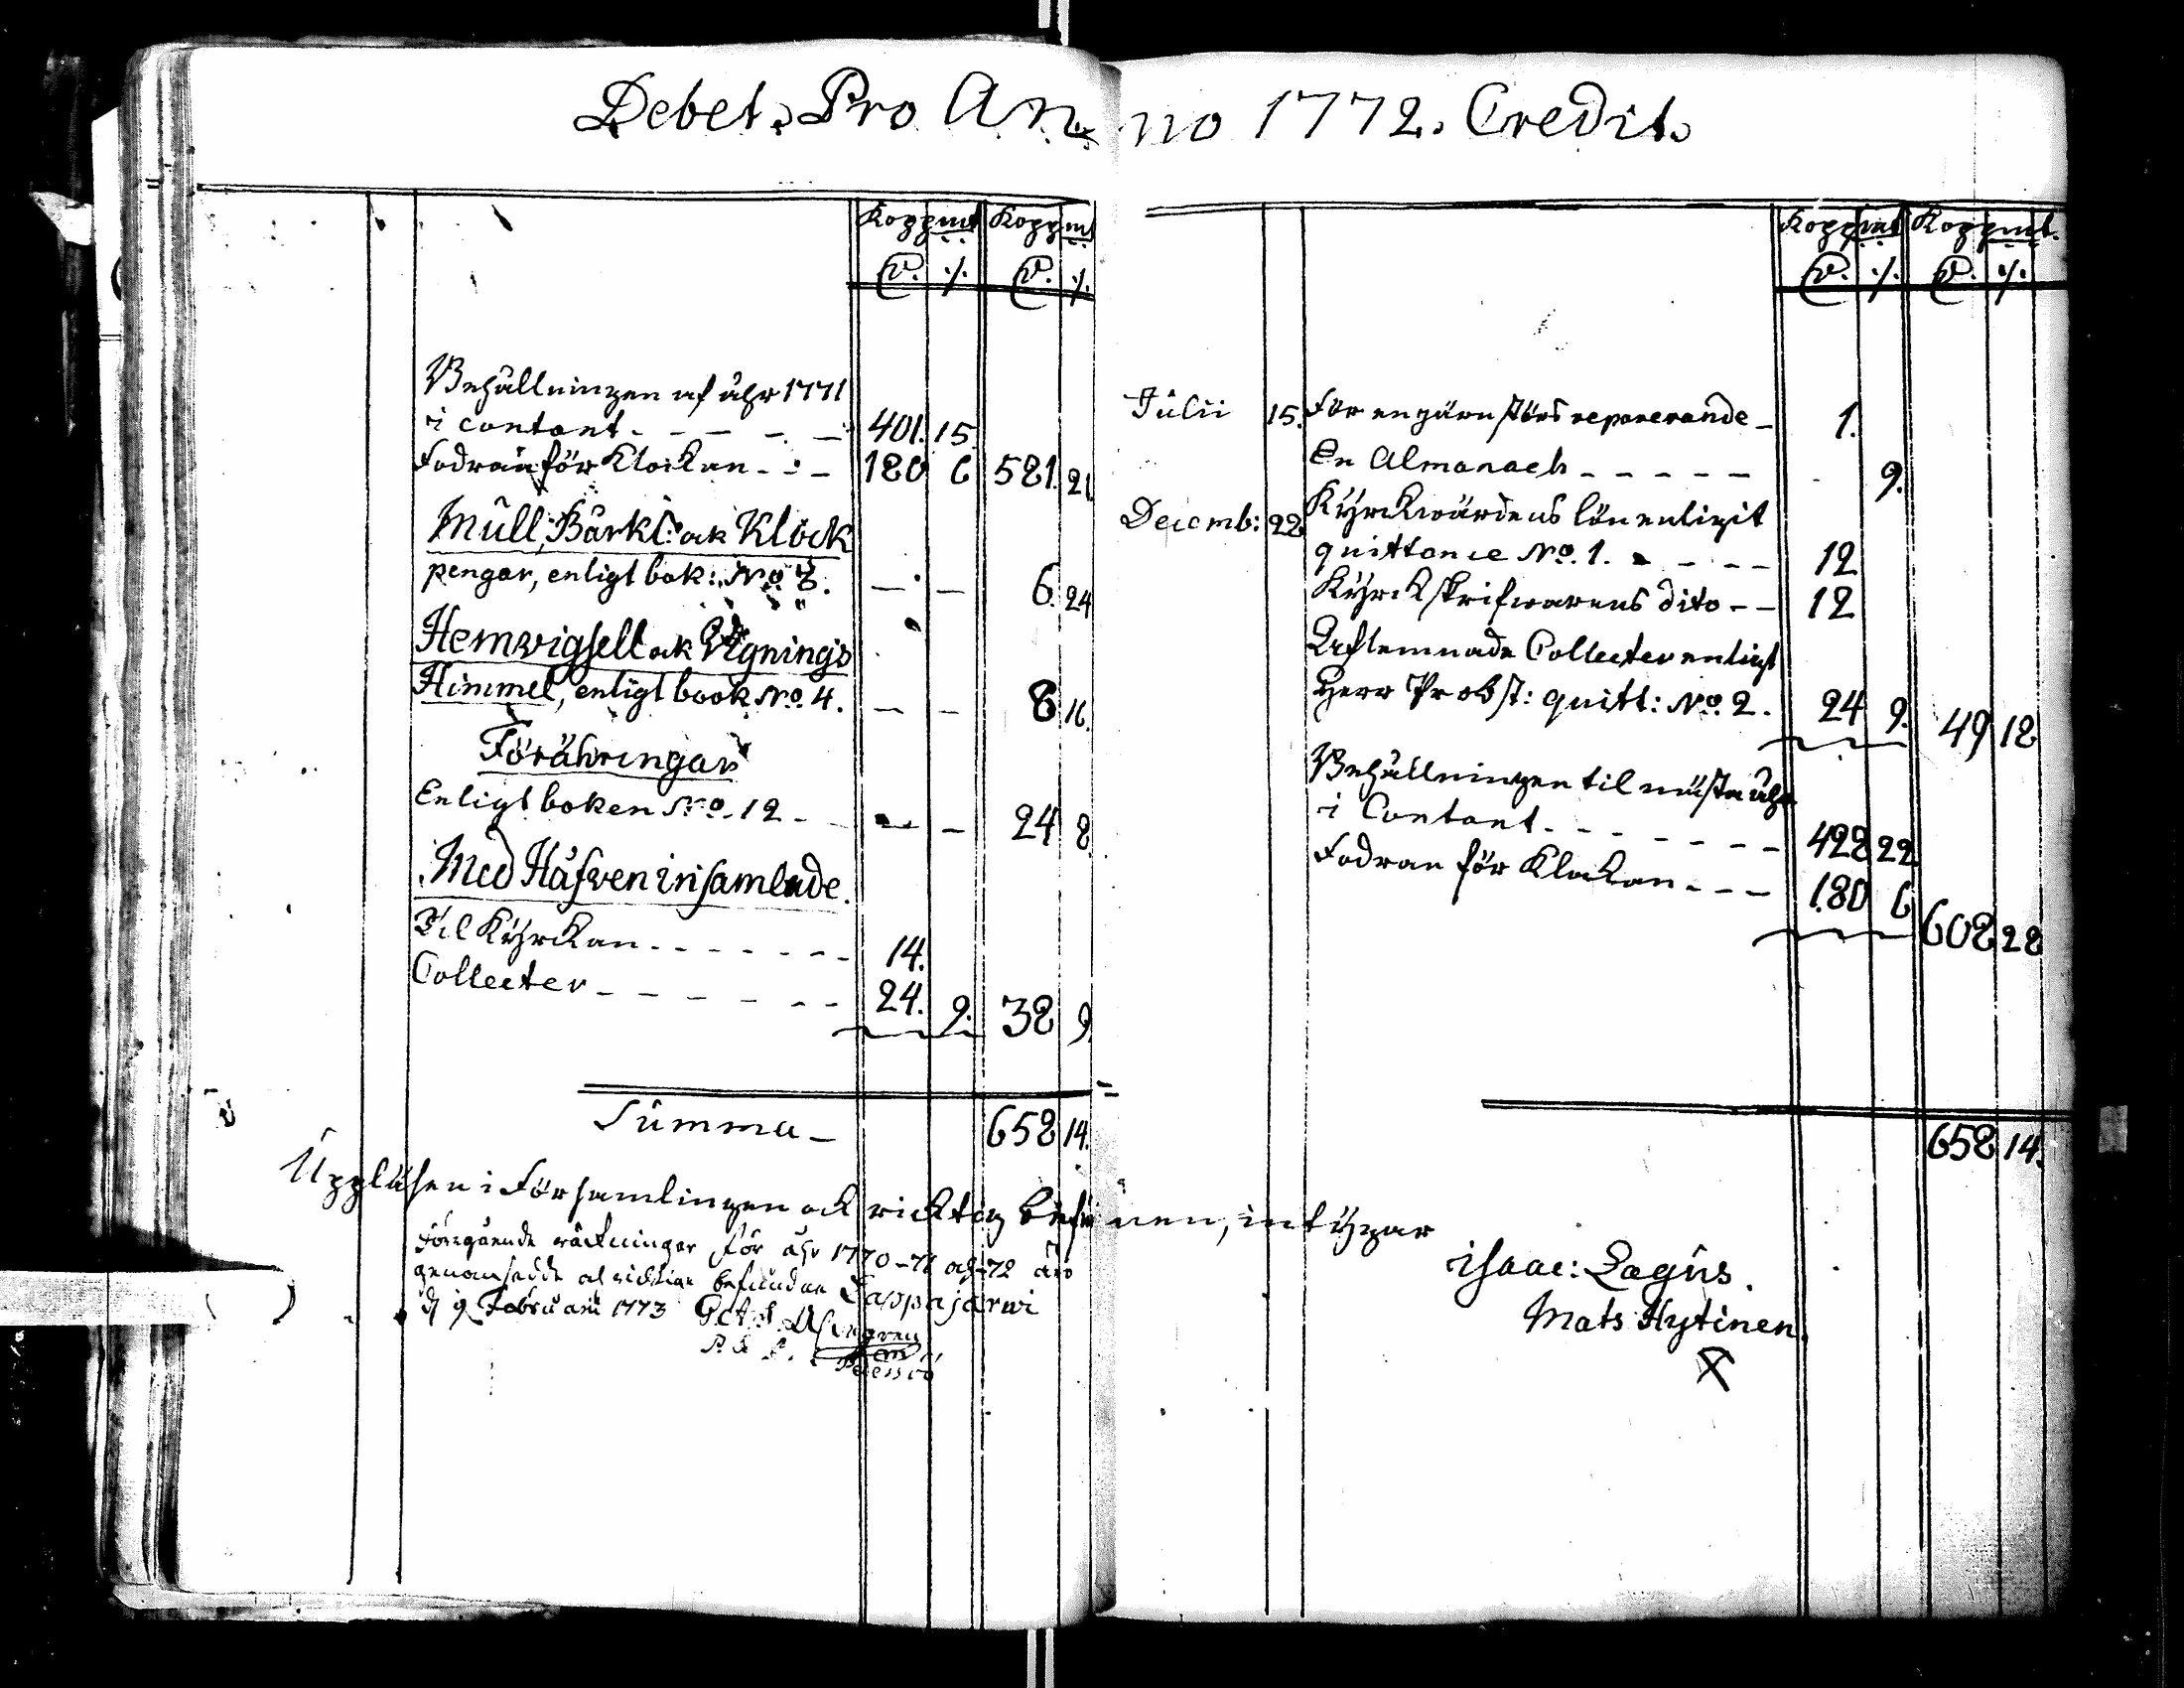 Debet. Pro Anno 1772. Credit.
Koppmt Koppmt
D. ./. D. ./.
Behållningen af åhr 1771
i contant - - - - 401. 15
Fodran för Klockan - - - 180 6 581. 21.
Mull, Bårkl: ock Klock
pengar, enligt bok: No. 3. — — 6. 24
Hemvigsell ock Vignings
Himmel, enligt book No. 4. — — 8 16.
Förähringar
Enligt boken No. 12 - — — 24 8.
Med Håfven insamlade.
Til Kyrckan - - - - - - - 14.
Collecter - - - - - - - 24. 9. 38 9.
Summa - 658 14.
Uppläsen i Församlingen ock richtig befunnen, intygar
Föregående räckningar för åhr 1770-71 och 72 äro
genomsedde ock richtige befundne Lappajärwi
d 9 Februarii 1773
Koppmt Koppmt.
D. ./. D. ./.
Julii 15. För en järn störs reparerande - 1.
En Almanach - - - - - - 9.
Decemb: 22. Kyrckwärdens lön enligit
quittance No. 1. - - - - 12
Kyrckskrifwarens dito - - 12
Aflemnade Collecter enligt
Herr Probst: quitt: No. 2. 24 9. 49 18
Behållningen til nästa åhr
i Contant - - - - - - - 428 22
Fodran för Klockan - - - 180 6 608 28
658 14.
Isaac: Lagus.
Mats Hytinen.